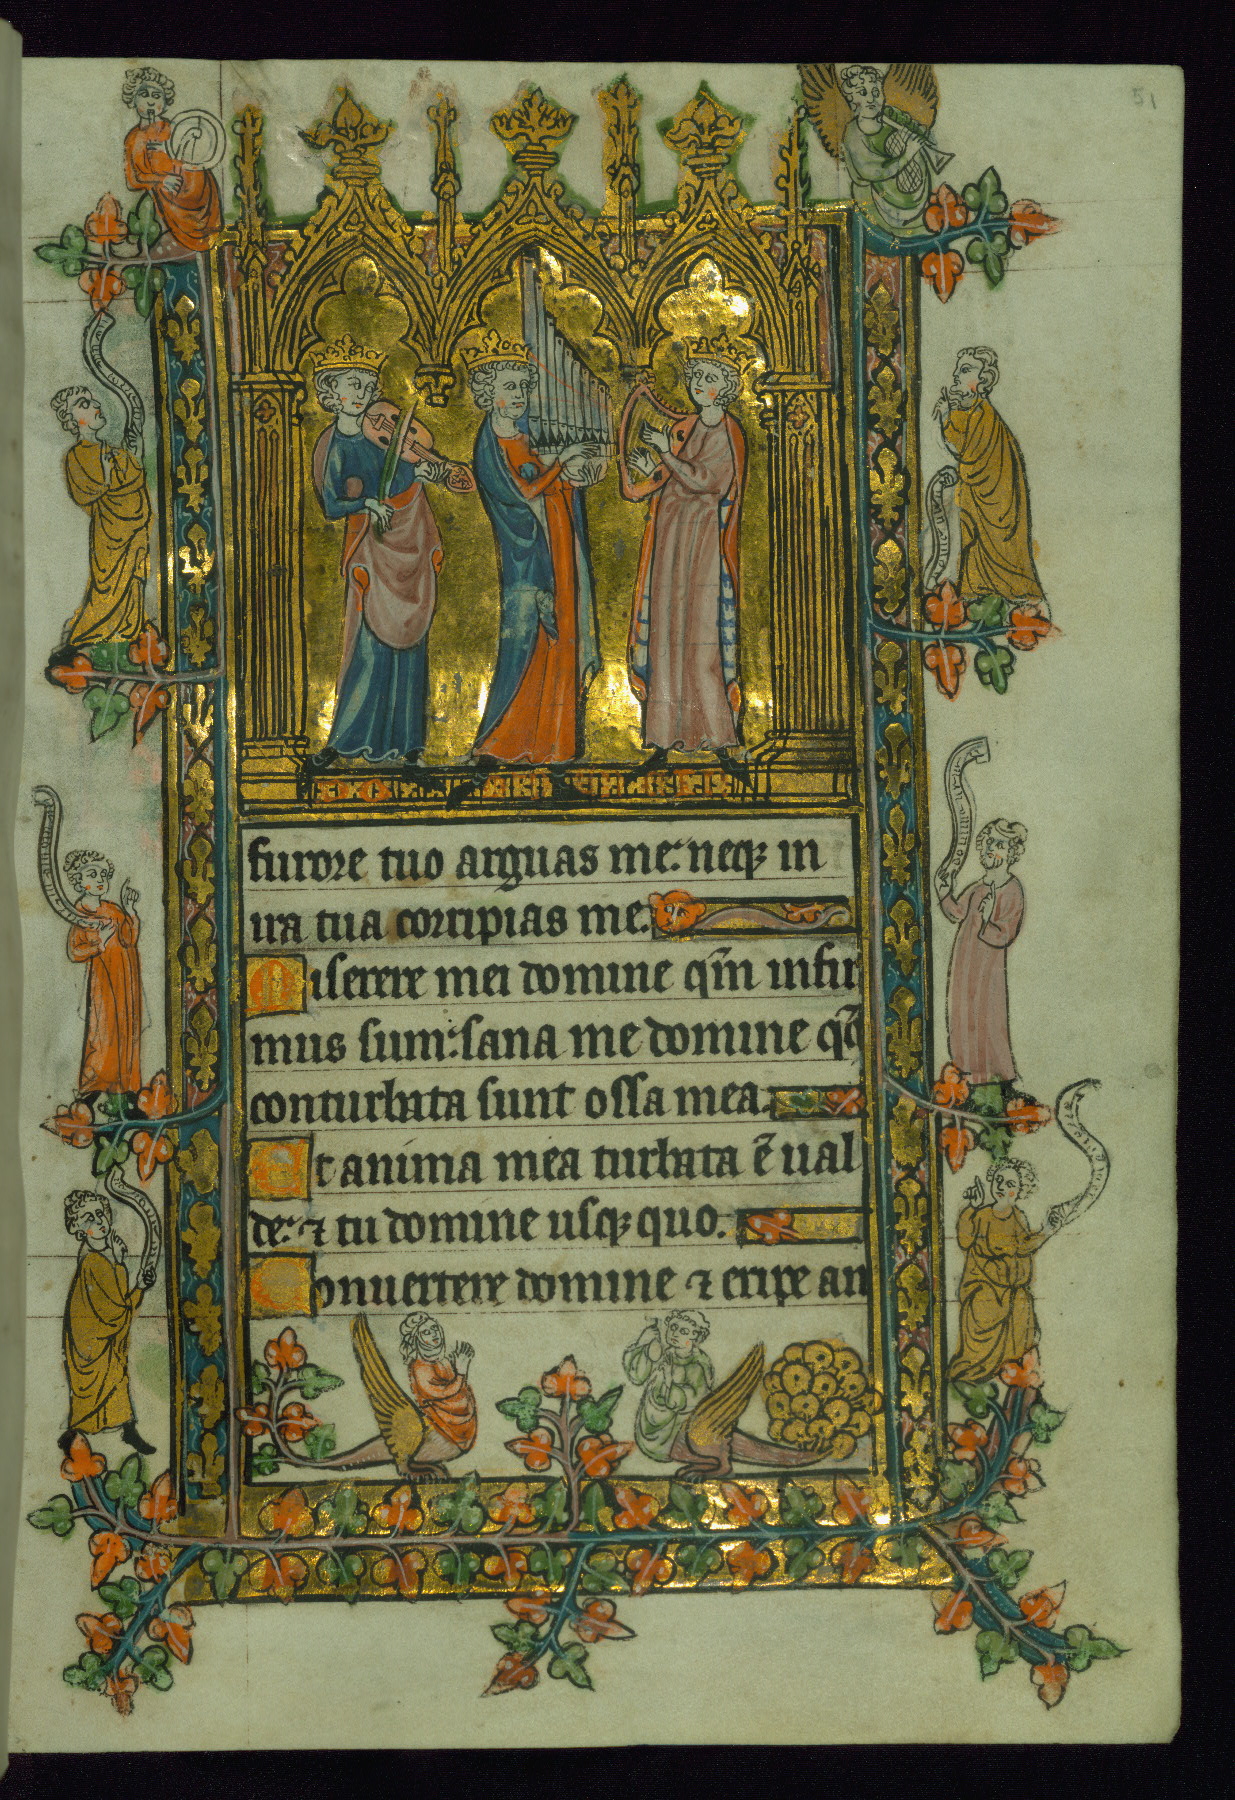 51
furore tuo arguas me: neq₃ in
ira tua corripias me.
Miserere mei domine qm̄ infir
mus sum: sana me domine qm̄
conturbata sunt ossa mea.
Et anima mea turbata ē ual
de: ⁊ tu domine usq₃quo.
Conuertere domine ⁊ eripe an